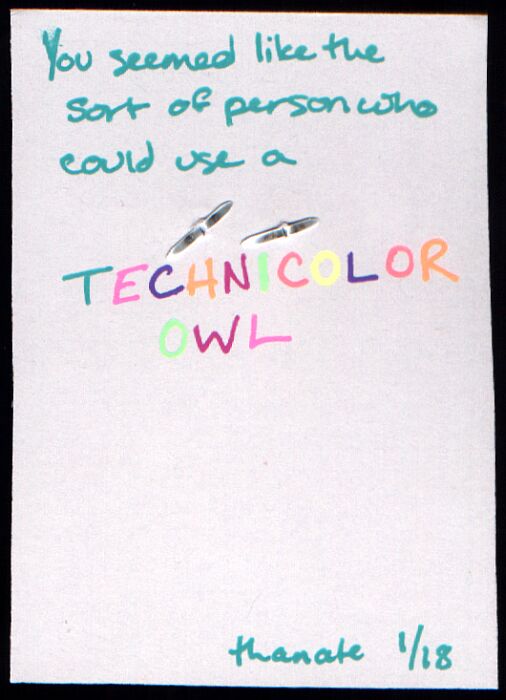 You seemed like the
sort of person who
could use a
TECHNICOLOR
OWL
thanate 1/18